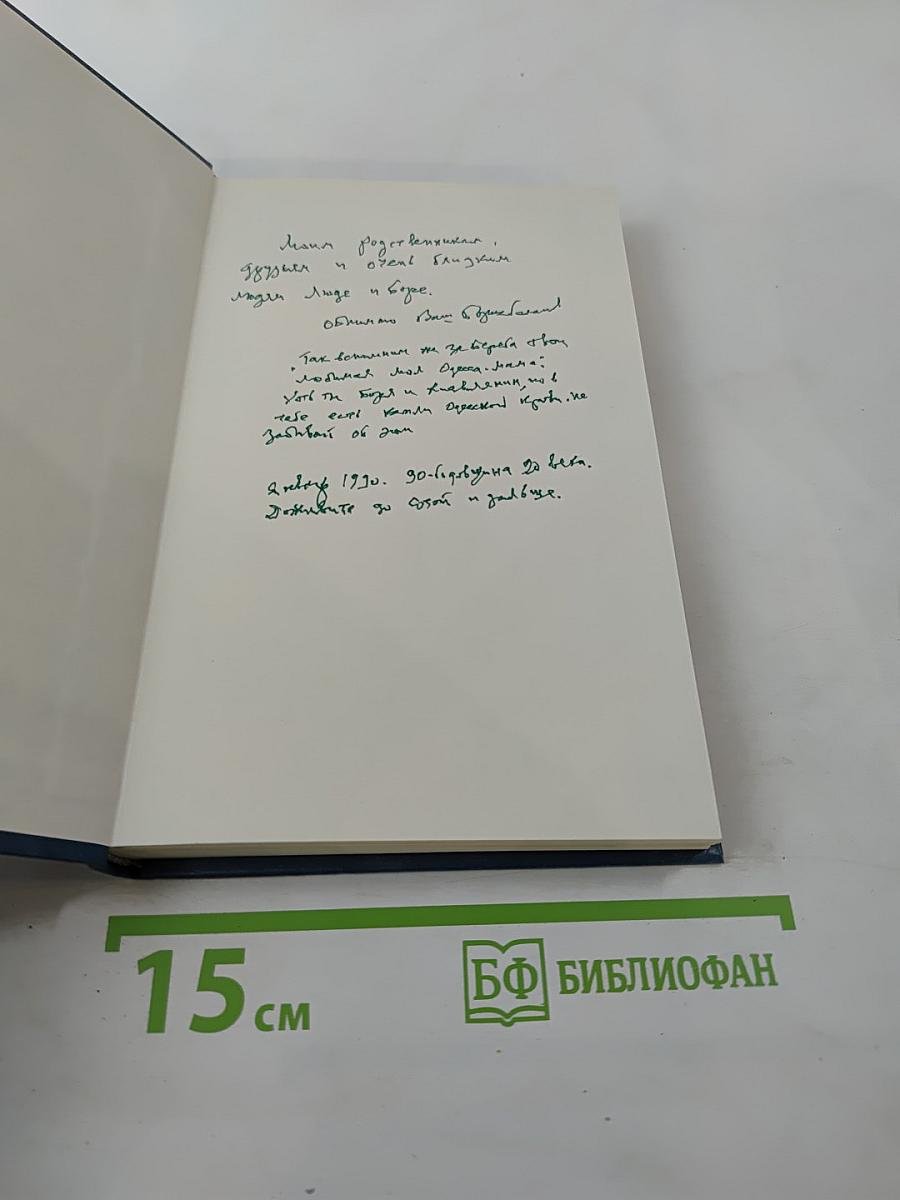 Моим родственникам,
друзьям и очень близким
людям Люде и Боре.
обнимаю Ваш
"Так вспомним же за берега твои
любимая моя Одесса-мама".
Хоть ты Боря и киевлянин, но в
тебе есть капли Одесской крови. не
забывай об этом
Январь 1990. 90-годовщина 20 века.
Доживите до сотой и дальше.
15 см
БФ БИБЛИОФАН